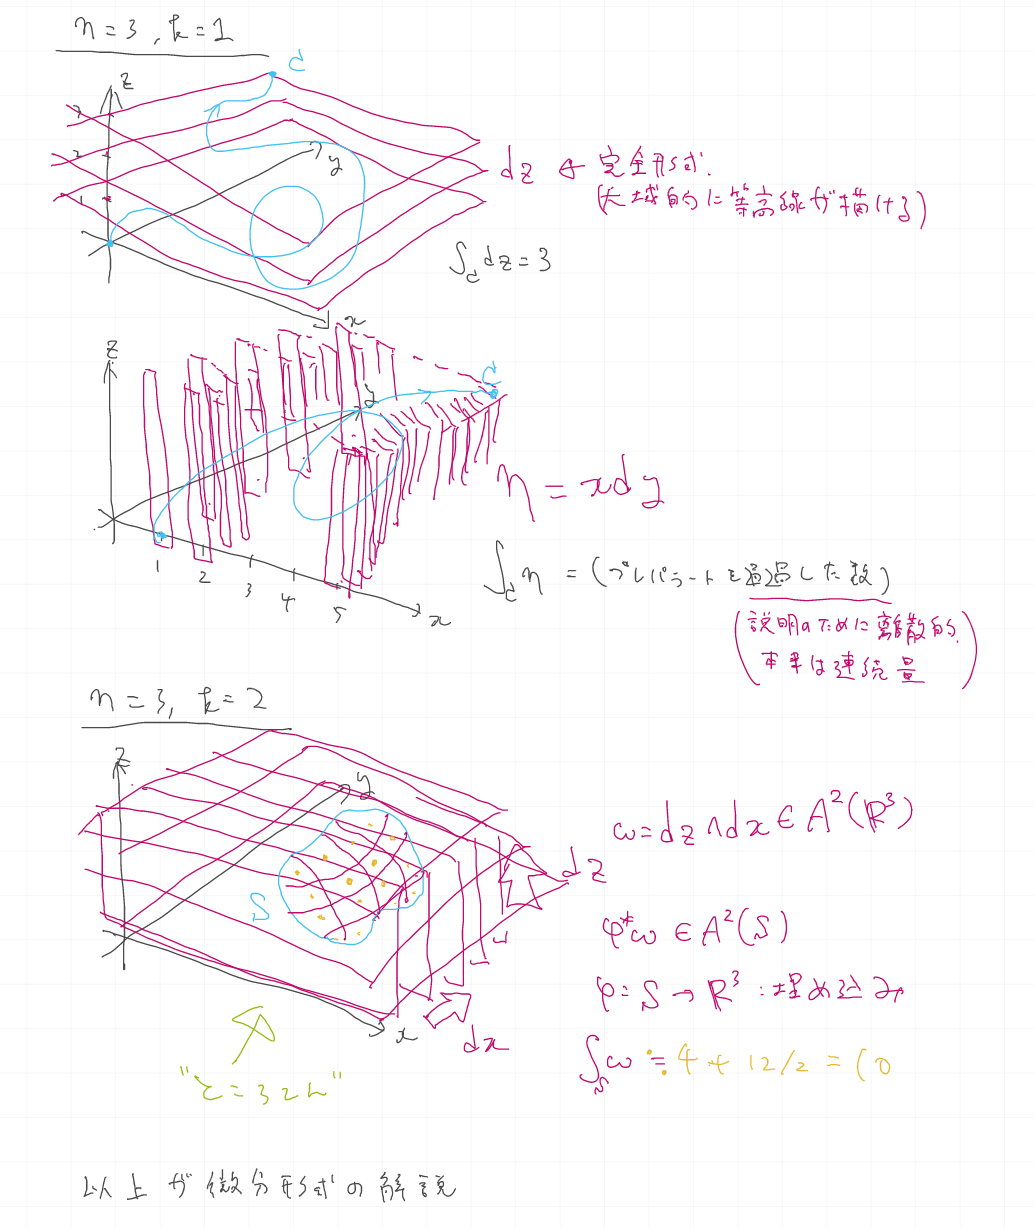 n=3, k=1
c
z
3
2
1
y
x
dz ← 完全形式.
(大域的に等高線が描ける)
∫_c dz = 3
z
y
c
1 2 3 4 5
x
η = xdy
∫_c η = (プレパラートを通過した数)
(説明のために離散的.
本来は連続量)
n=3, k=2
z
y
S
x
dz
dx
"ところてん"
ω = dz∧dx ∈ A²(ℝ³)
φ*ω ∈ A²(S)
φ: S → ℝ³ : 埋め込み
∫_S ω ≒ 4 + 12/2 = 10
以上が微分形式の解説